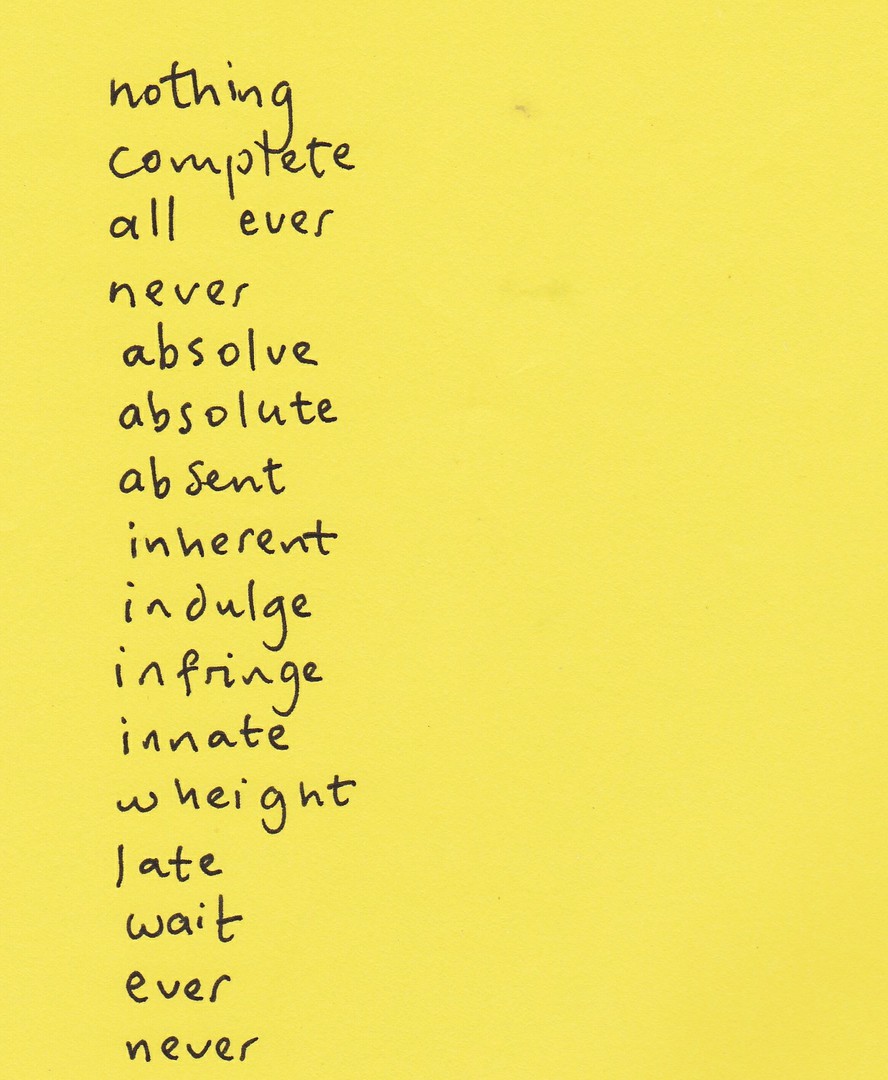 nothing
complete
all ever
never
absolve
absolute
absent
inherent
indulge
infringe
innate
wheight
late
wait
ever
never